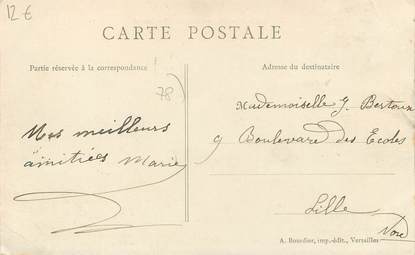 12 €
CARTE POSTALE
Partie réservée à la correspondance
Adresse du destinataire
78)
Mes meilleurs
amitiées Marie
Mademoiselle J. Bertoux
9 Boulevard des Ecoles
Lille
Nord
A. Bourdier, imp.-édit., Versailles